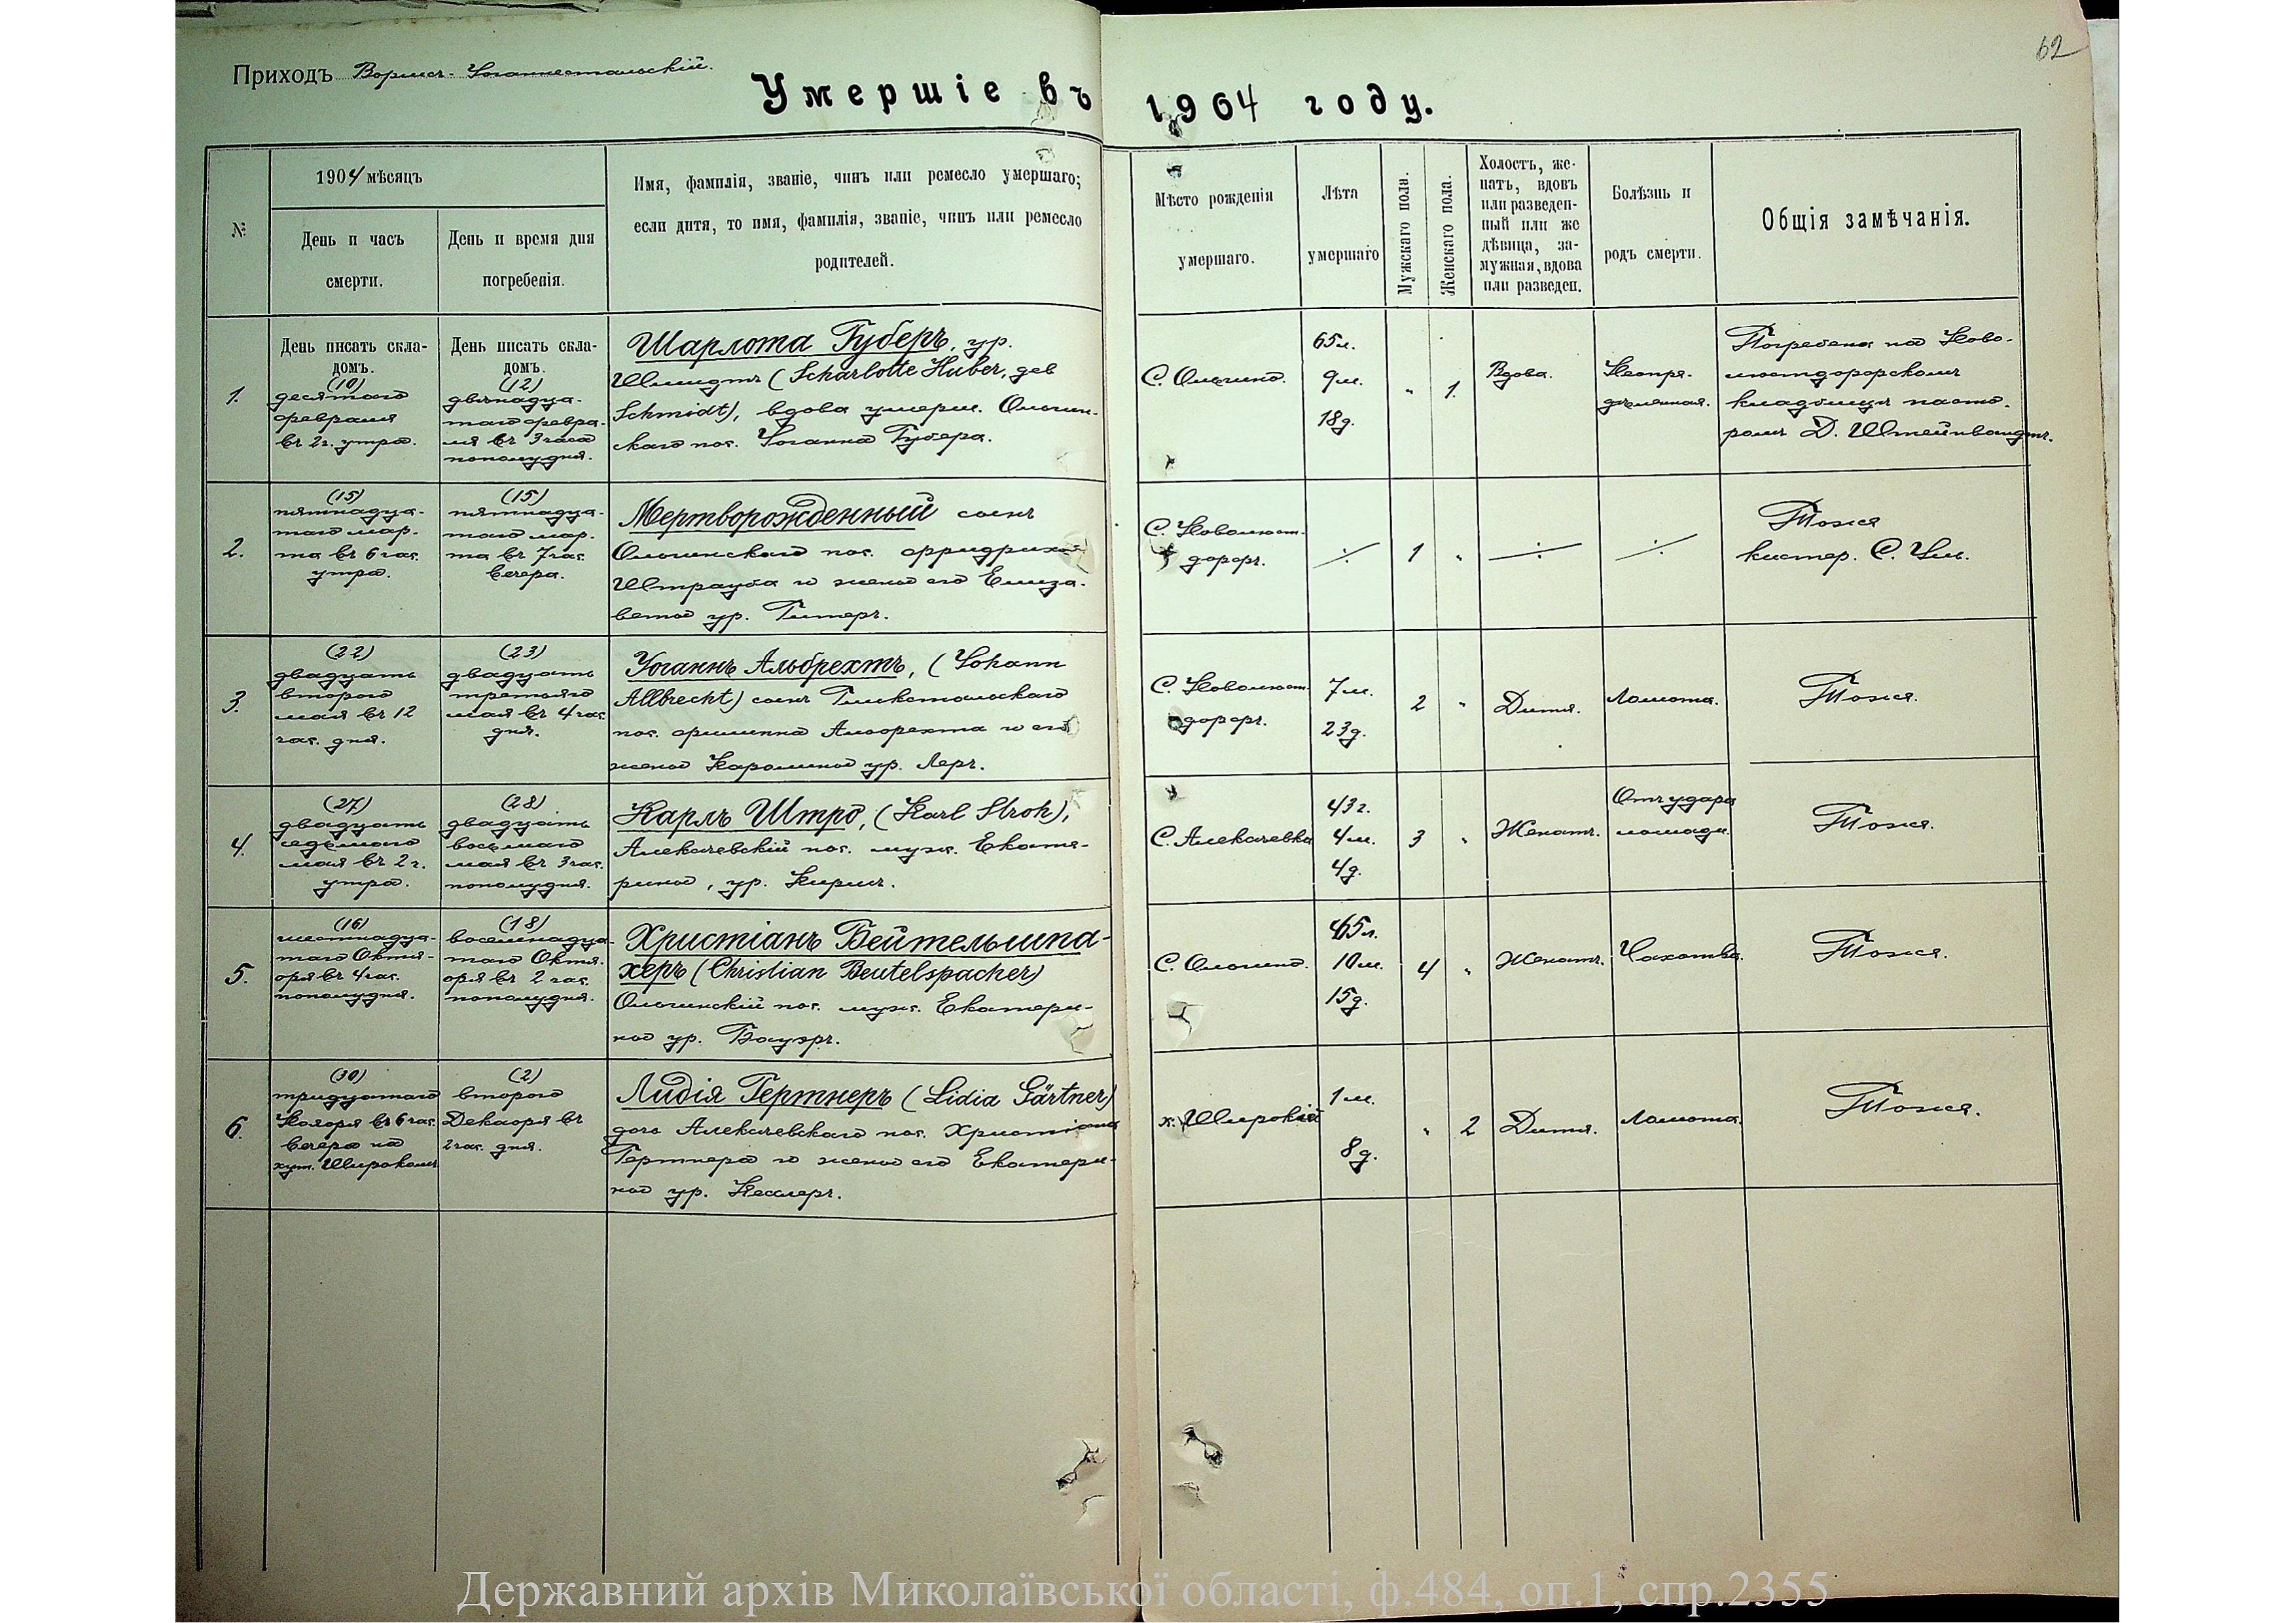 62
Приходъ Вормсъ-Іоганнестальскій.
Умершіе въ 1904 году.
№
1904 мѣсяцъ
День и часъ
смерти.
День и время дня
погребенія.
Имя, фамилія, званіе, чинъ или ремесло умершаго;
если дитя, то имя, фамилія, званіе, чинъ или ремесло
родителей.
Мѣсто рожденія
умершаго.
Лѣта
умершаго
Мужскаго пола.
Женскаго пола.
Холостъ, же-
натъ, вдовъ
или разведен-
ный или же
дѣвица, за-
мужная, вдова
или разведен.
Болѣзнь и
родъ смерти.
Общія замѣчанія.
1.
День писать скла-
домъ.
(10)
десятаго
февраля
въ 2ч. утра.
День писать скла-
домъ.
(12)
двѣнадца-
таго февра-
ля въ 3 часа
пополудня.
Шарлота Губеръ, ур.
Шмидтъ (Scharlotte Huber, geb
Schmidt), вдова умерш. Ольгин-
скаго пос. Іоганна Губера.
С. Ольгино.
65л.
9м.
18д.
"
1.
Вдова.
Неопре-
дѣленная.
Погребена на Ново-
люстдорфскомъ
кладбищѣ пасто-
ромъ Д. Штейнвандтъ.
2.
(15)
пятнадца-
таго мар-
та въ 6 час.
утра.
(15)
пятнадца-
таго мар-
та въ 7 час.
вечера.
Мертворожденный сынъ
Ольгинскаго пос. Фридриха
Штрауба и жены его Елиза-
веты ур. Гитеръ.
С. Новолюст-
дорфъ.
1
"
Тоже
кистер. С.
3.
(22)
двадцать
второго
мая въ 12
час. дня.
(23)
двадцать
третьяго
мая въ 4 час.
дня.
Іоганнъ Альбрехтъ, (Johann
Allbrecht) сынъ Гликстальскаго
пос. Филиппа Альбрехта и его
жены Каролины ур. Леръ.
С. Новолюст-
дорфъ.
7м.
23д.
2
"
Дитя.
Ломота.
Тоже.
4.
(27)
двадцать
седьмого
мая въ 2 ч.
утра.
(28)
двадцать
восьмаго
мая въ 3 час.
пополудня.
Карлъ Штро, (Karl Stroh),
Алексѣевскій пос. муж. Екате-
рины, ур. Кирш.
С. Алексѣевка
43г.
4м.
4д.
3
"
Женатъ.
Отъ удара
лошади.
Тоже.
5.
(16)
шестнадца-
таго Октя-
бря въ 4 час.
пополудня.
(18)
восемнадца-
таго Октя-
бря въ 2 час.
пополудня.
Христіанъ Бейтельшпа-
херъ (Christian Beutelspacher)
Ольгинскій пос. муж. Екатери-
ны ур. Бауэръ.
С. Ольгино.
65л.
10м.
15д.
4
"
Женатъ.
Чахотка.
Тоже.
6.
(30)
тридцатаго
Ноября въ 6 час.
вечера на
хут. Широкомъ
(2)
второго
Декабря въ
2 час. дня.
Лидія Гертнеръ (Lidia Gärtner)
дочь Алексѣевскаго пос. Христіана
Гертнера и жены его Екатери-
ны ур. Кесслеръ.
х. Широкій
1м.
8д.
"
2
Дитя.
Ломота.
Тоже.
Державний архів Миколаївської області, ф.484, оп.1, спр.2355